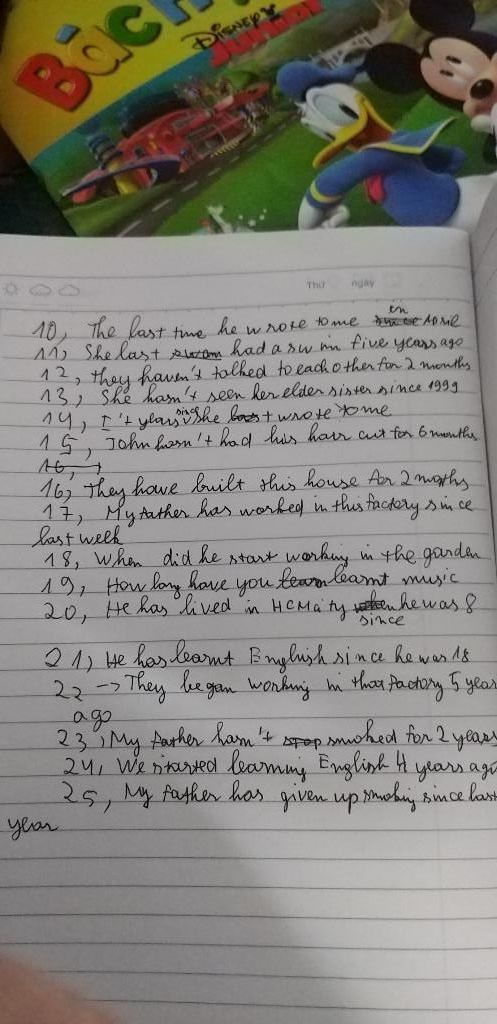 BÁCH
DISNEY
JUNIOR
Thứ ngày
in
10, The last time he wrote to me since April
11, She last swam had a swim five years ago
12, they haven't talked to each other for 2 months
13, She hasn't seen her elder sister since 1999
since
14, I't years she last wrote to me
15, John hasn't had his hair cut for 6 months
16,
16, They have built this house for 2 moths
17, My father has worked in this factory since
last week
18, When did he start working in the garden
19, How long have you learn learnt music
20, He has lived in HCM city when he was 8
since
21, He has learnt English since he was 18
22 → They began working in that factory 5 year
ago
23, My father hasn't stop smoked for 2 years
24, We started learning English 4 years ago
25, My father has given up smoking since last
year